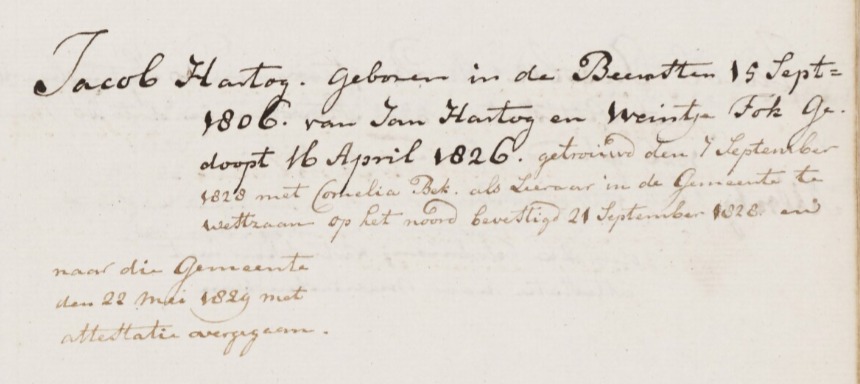 Jacob Hartog. Geboren in de Beemster 15 Sept=
1806. van Jan Hartog en Weintje Fok Ge.
doopt 16 April 1826. getrouwd den 7 September
1828 met Cornelia Bek. als Leeraar in de Gemeente te
Westzaan op het noord bevestigd 21 September 1828. en
naar die Gemeente
den 22 Mei 1829 met
attestatie overgegaan.